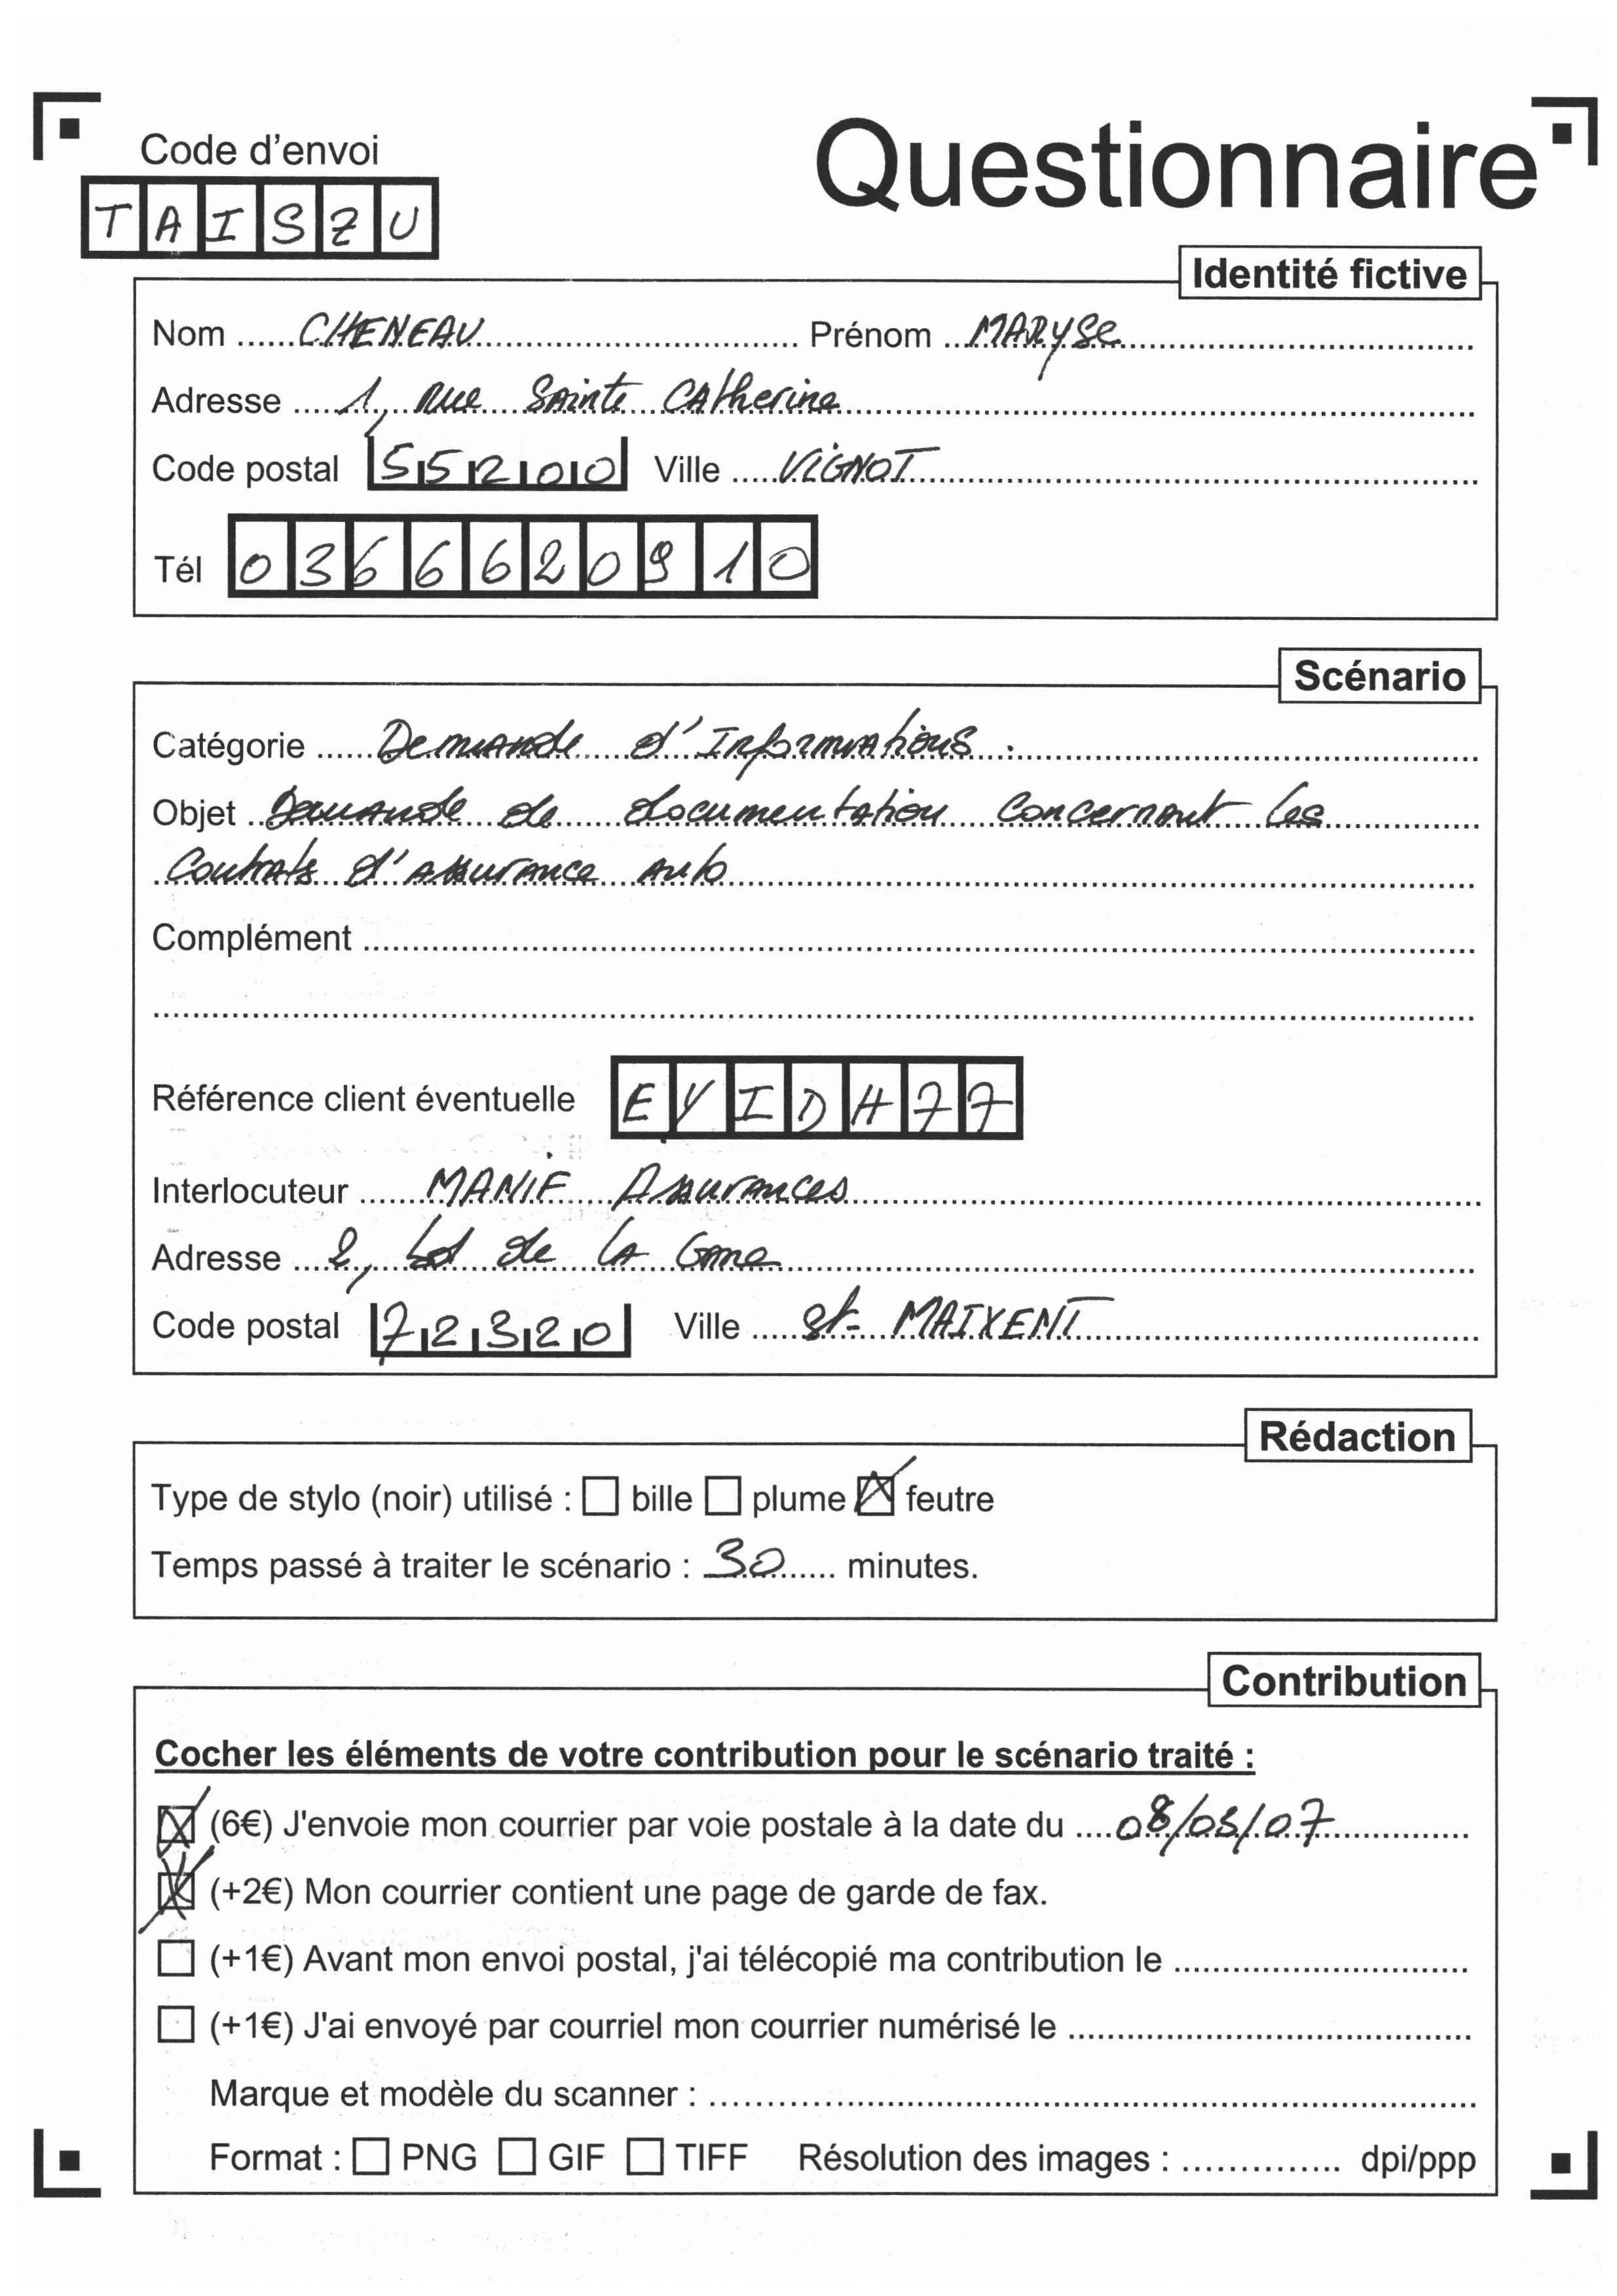 Questionnaire
Code d'envoi
TAISZU
Identité fictive
Nom ......CHENEAU...... Prénom ...MARYSE......
Adresse .....1, Rue Sainte Catherine......
Code postal 55200 Ville .....VIGNOT......
Tél 0366620910
Scénario
Catégorie ......Demande d'Informations.......
Objet ..Demande de documentation concernant les
Contrats d'assurance auto......
Complément ......
Référence client éventuelle EYIDH77
Interlocuteur ......MANIF Assurances......
Adresse ....2, de la
Code postal 72320 Ville .....St- MAIXENT......
Rédaction
Type de stylo (noir) utilisé : ☐ bille ☐ plume ☒ feutre
Temps passé à traiter le scénario : 30...... minutes.
Contribution
Cocher les éléments de votre contribution pour le scénario traité :
☒ (6€) J'envoie mon courrier par voie postale à la date du ....08/03/07......
☒ (+2€) Mon courrier contient une page de garde de fax.
☐ (+1€) Avant mon envoi postal, j'ai télécopié ma contribution le ......
☐ (+1€) J'ai envoyé par courriel mon courrier numérisé le ......
Marque et modèle du scanner : ......
Format : ☐ PNG ☐ GIF ☐ TIFF Résolution des images : .............. dpi/ppp